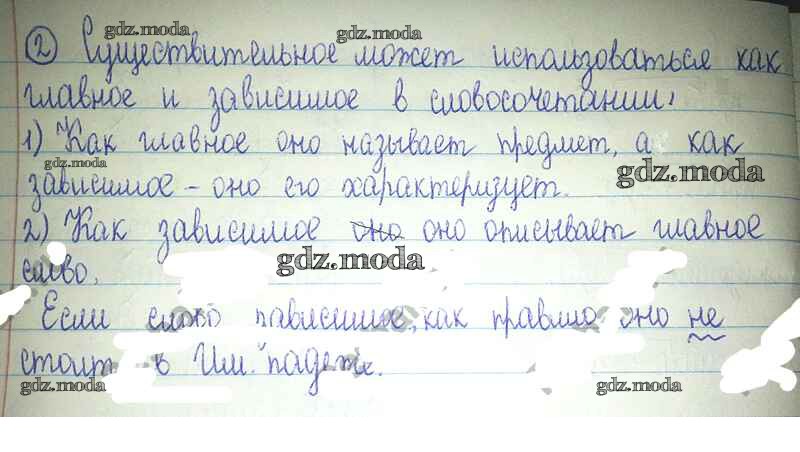 gdz.moda
gdz.moda
② Существительное может использоваться как
главное и зависимое в словосочетании:
1) Как главное оно называет предмет, а как
gdz.moda
gdz.moda
зависимое – оно его характеризует.
2) Как зависимое оно оно описывает главное
gdz.moda
слово.
Если слово зависимое, как правило оно не
стоит в Им. падеже.
gdz.moda
gdz.moda
gdz.moda